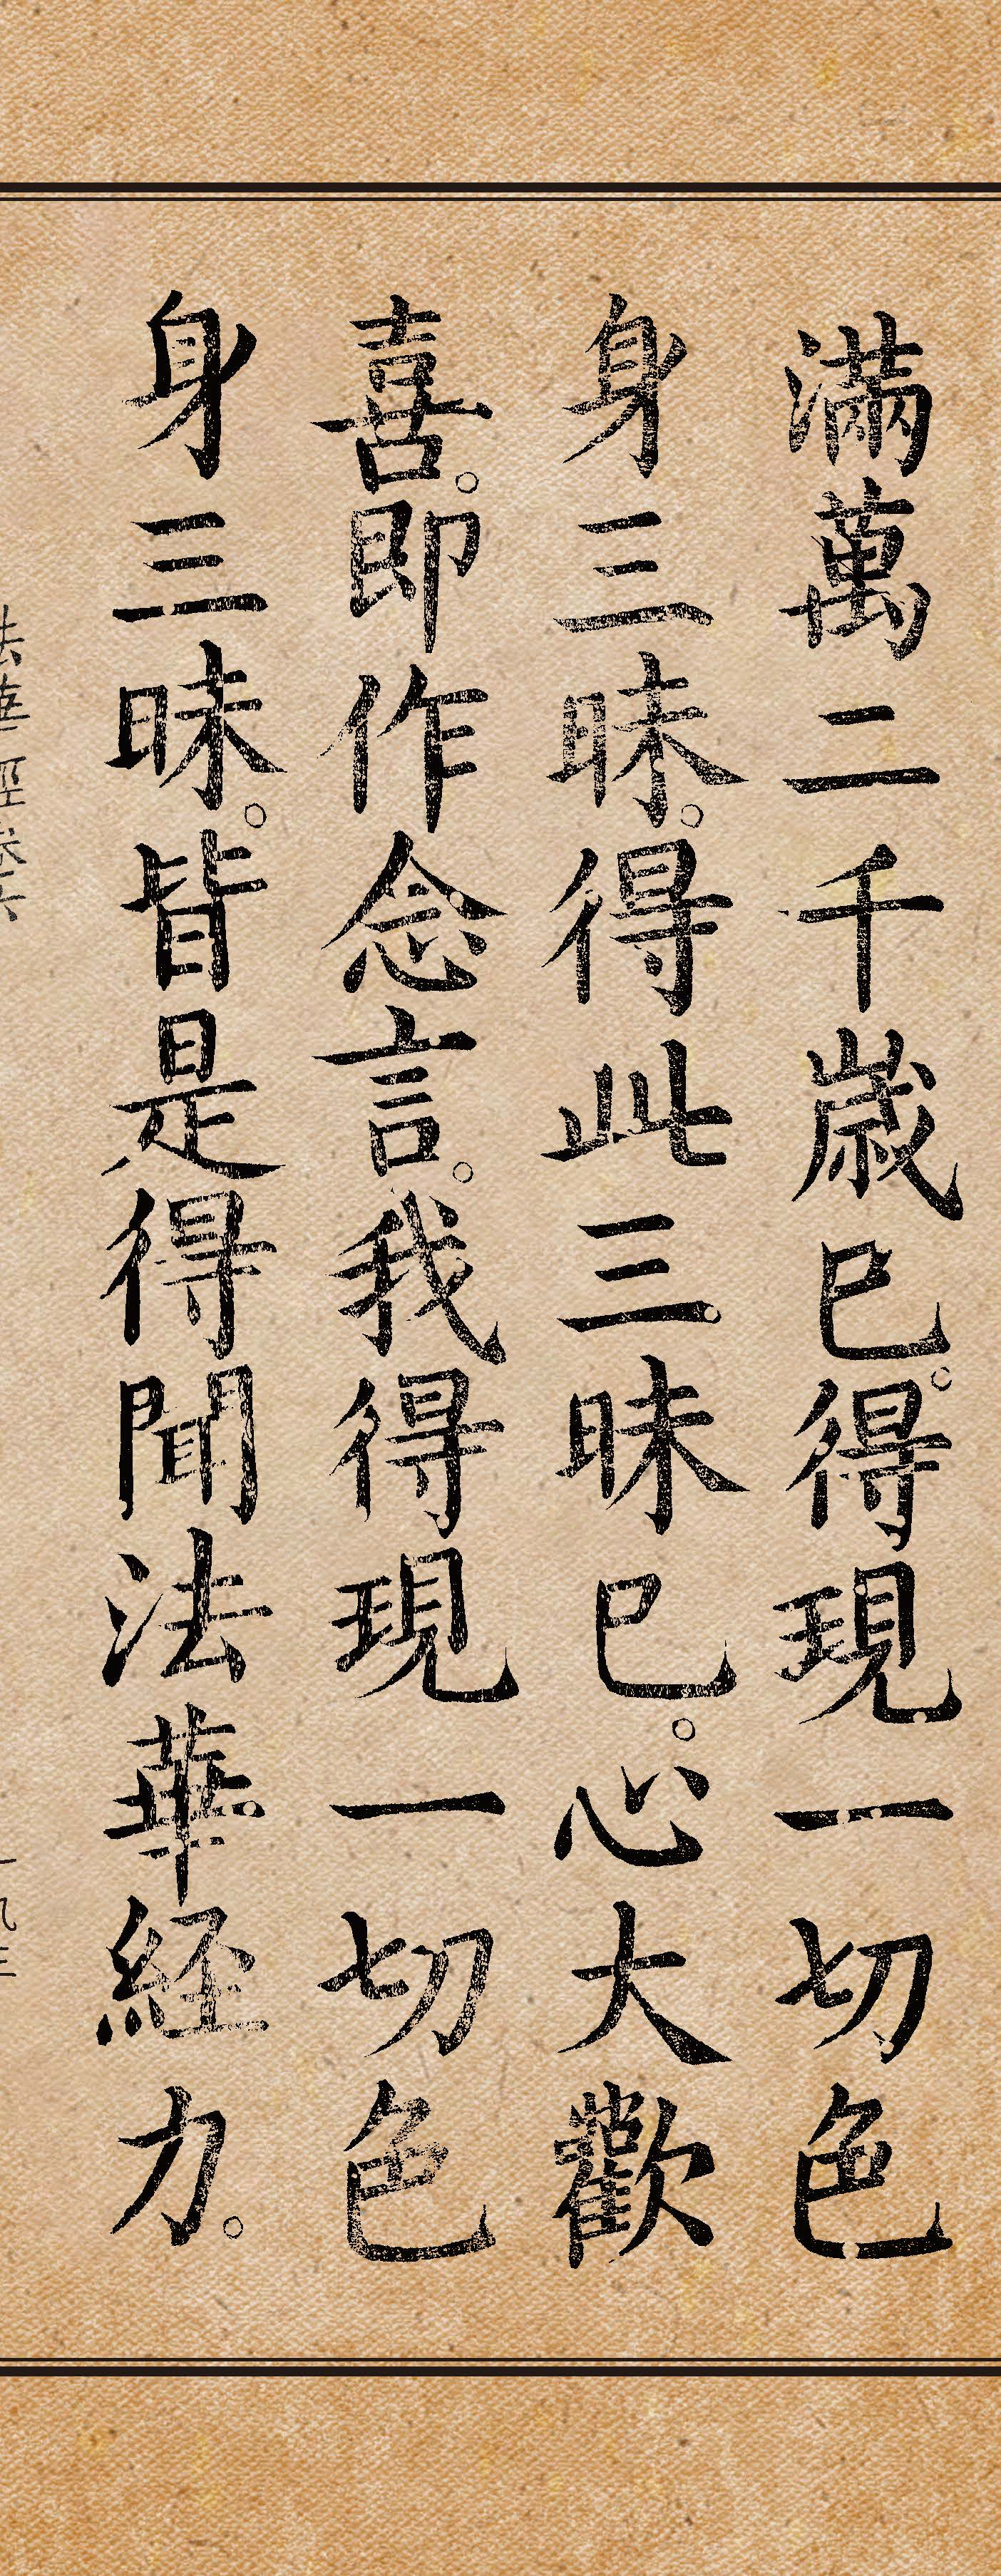 滿萬二千歲已。得現一切色
身三昧。得此三昧已。心大歡
喜。即作念言。我得現一切色
身三昧。皆是得聞法華經力。
法華經卷六